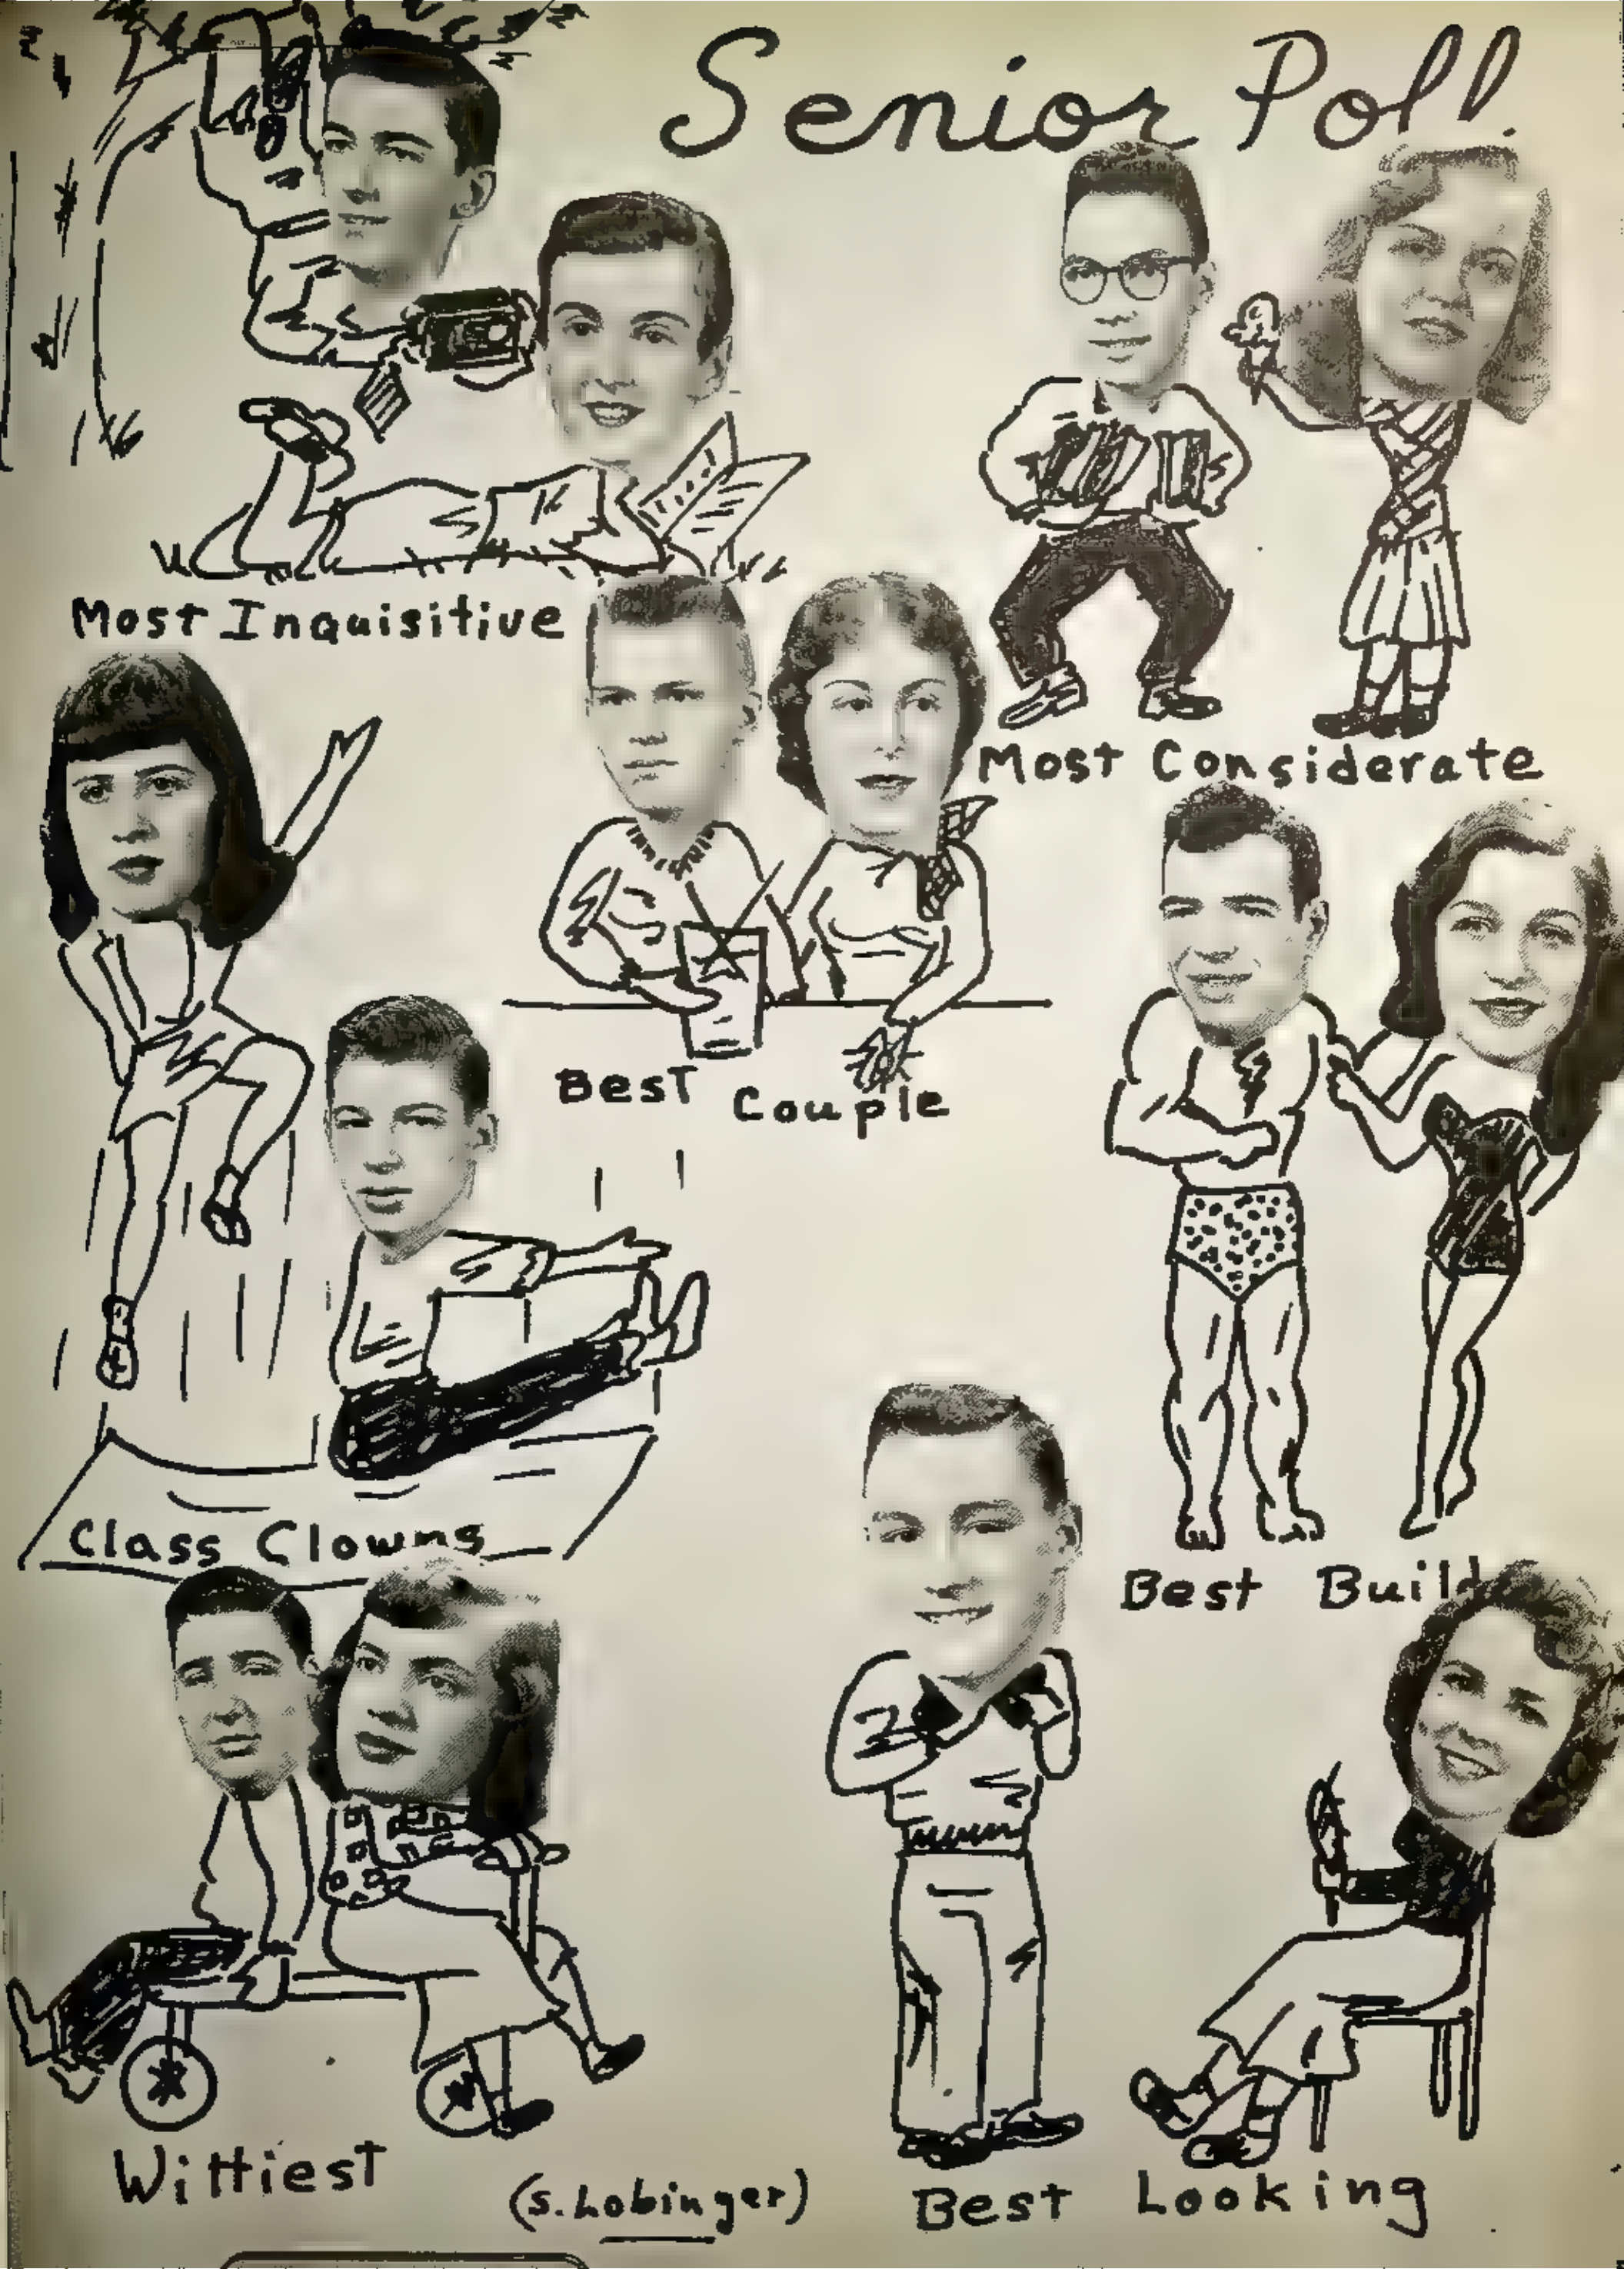 Senior Poll.
Most Inquisitive
Most Considerate
Best Couple
Class Clowns
Best Build
Wittiest
(S. Lobinger)
Best Looking